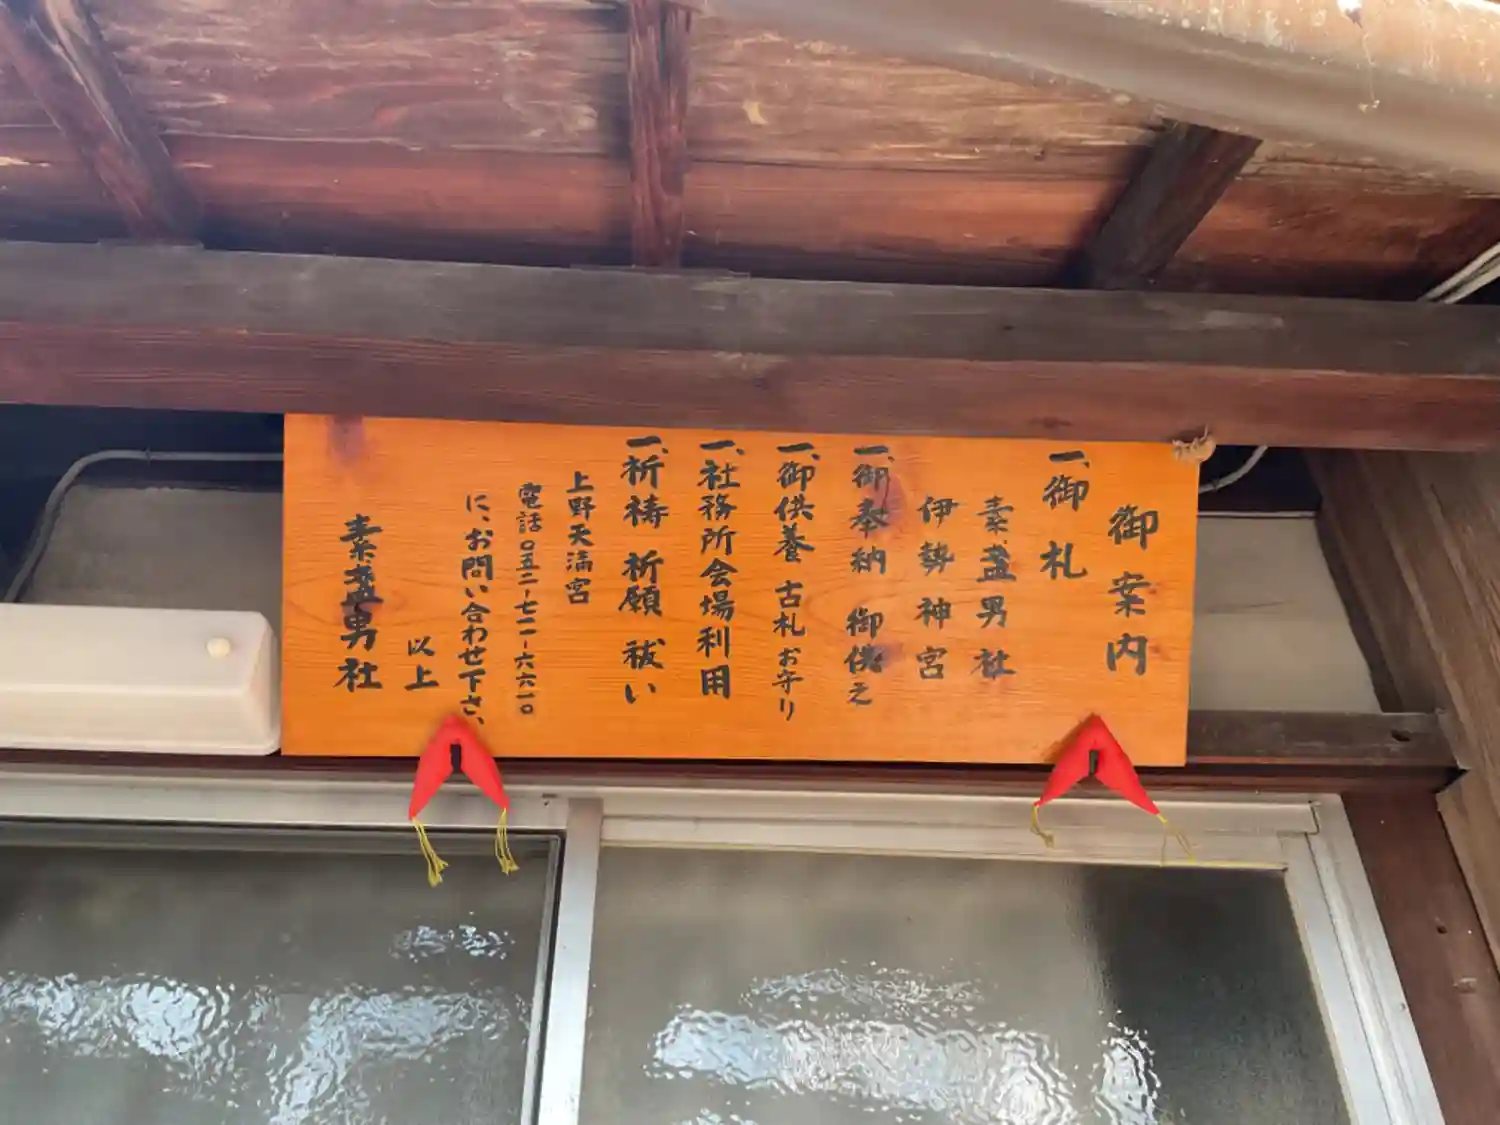 御案内
一、御札
素盞男社
伊勢神宮
一、御奉納 御供え
一、御供養 古札 お守り
一、社務所会場利用
一、祈祷 祈願 祓い
上野天満宮
電話〇五二-七一一-六六一〇
に、お問い合わせ下さい、
以上
素盞男社